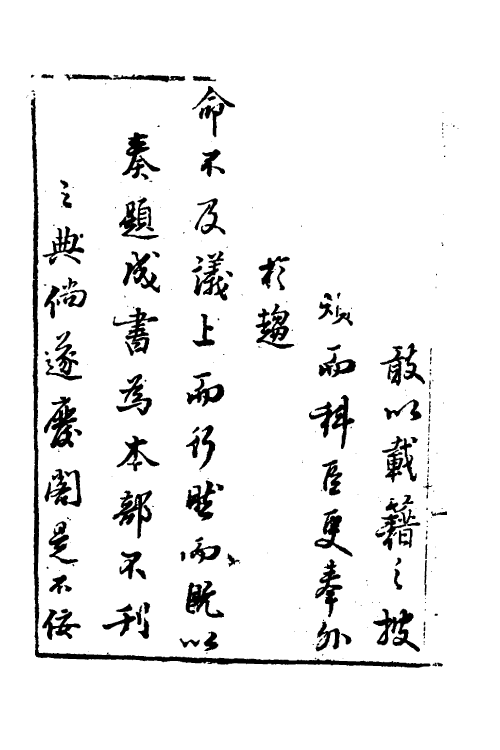 敢以載籍之披
煩而科臣更奉外
於趨
命不及議上而行然而既以
奏題成書為本部不刊
之典倘遂廢閣是不佞